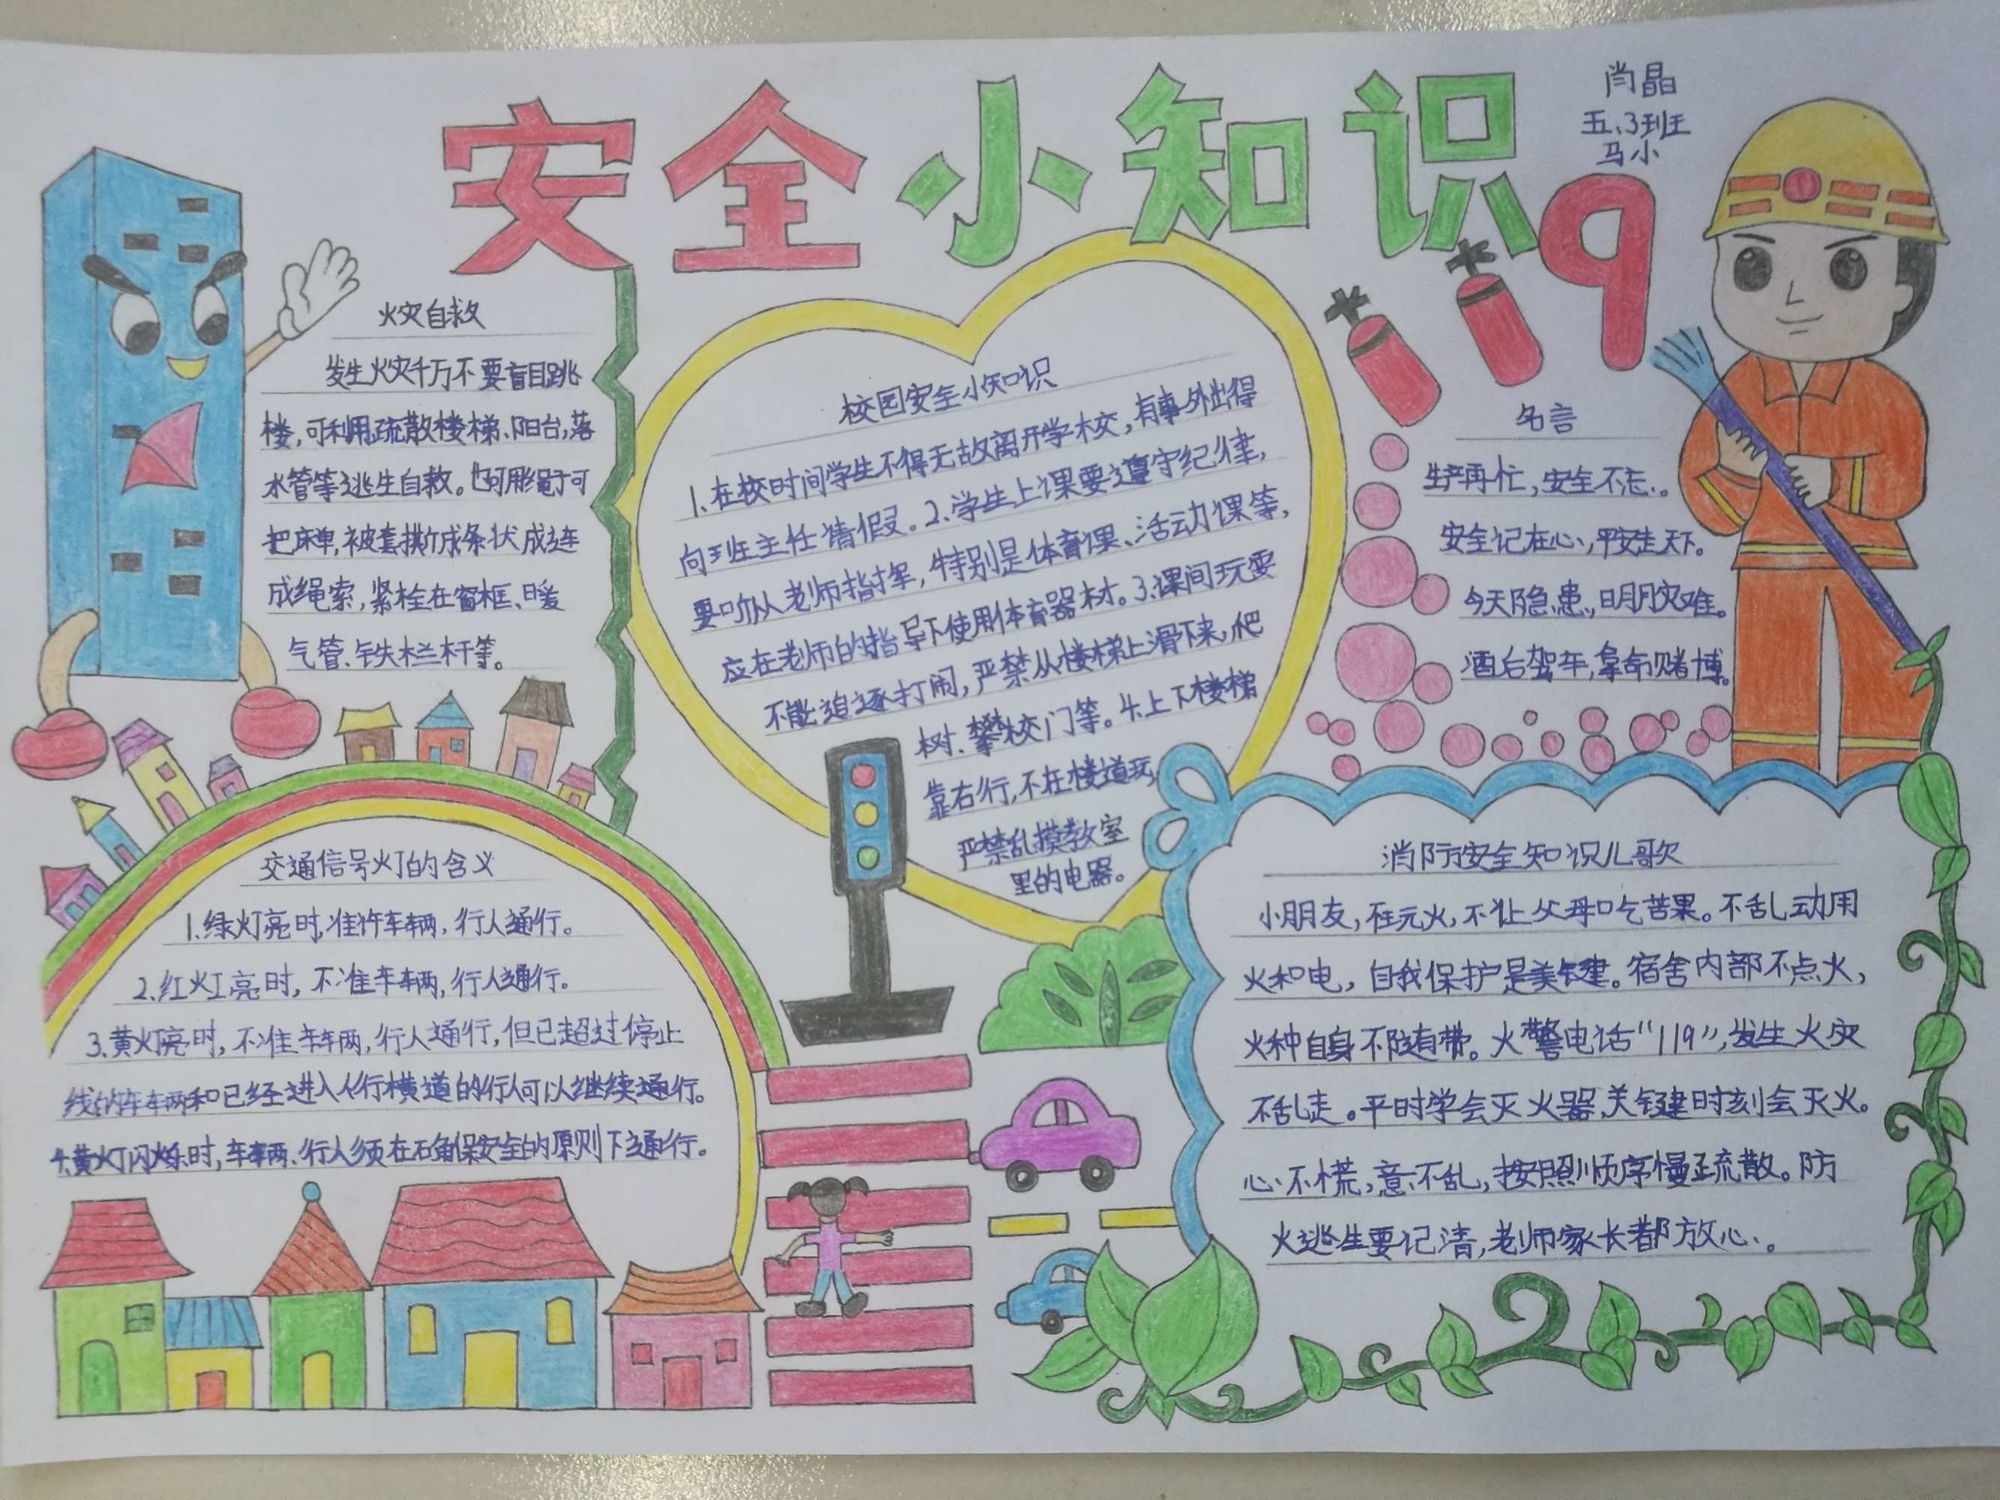 安全小知识
闫晶
五、3班
马小
火灾自救
发生火灾千万不要盲目跳
楼,可利用疏散楼梯、阳台,落
水管等逃生自救。也可用绳子可
把床单,被套撕成条状成连
成绳索,紧栓在窗框、暖
气管、铁栏杆等。
校园安全小知识
1、在校时间学生不得无故离开学校,有事外出得
向班主任请假。2、学生上课要遵守纪律,
要听从老师指挥,特别是体育课、活动课等,
应在老师的指导下使用体育器材。3、课间玩耍
不能追逐打闹,严禁从楼梯上滑下来,爬
树、攀校门等。4、上下楼梯
靠右行,不在楼道玩,
严禁乱摸教室
里的电器。
名言
生产再忙,安全不忘。
安全记在心,平安走天下。
今天隐患,明月灾难。
酒后驾车,拿命赌博。
交通信号灯的含义
1.绿灯亮时,准许车辆,行人通行。
2.红灯亮时,不准车辆,行人通行。
3.黄灯亮时,不准车辆,行人通行,但已超过停止
线的车辆和已经进入人行横道的行人可以继续通行。
4.黄灯闪烁时,车辆、行人须在石角保安全的原则下通行。
消防安全知识儿歌
小朋友,在元火,不让父母吃苦果。不乱动用
火和电,自我保护是关键。宿舍内部不点火,
火种自身不随有带。火警电话"119",发生火灾
不乱走。平时学会灭火器,关键时刻会灭火。
心不慌,意不乱,按照顺序慢疏散。防
火逃生要记清,老师家长都放心。